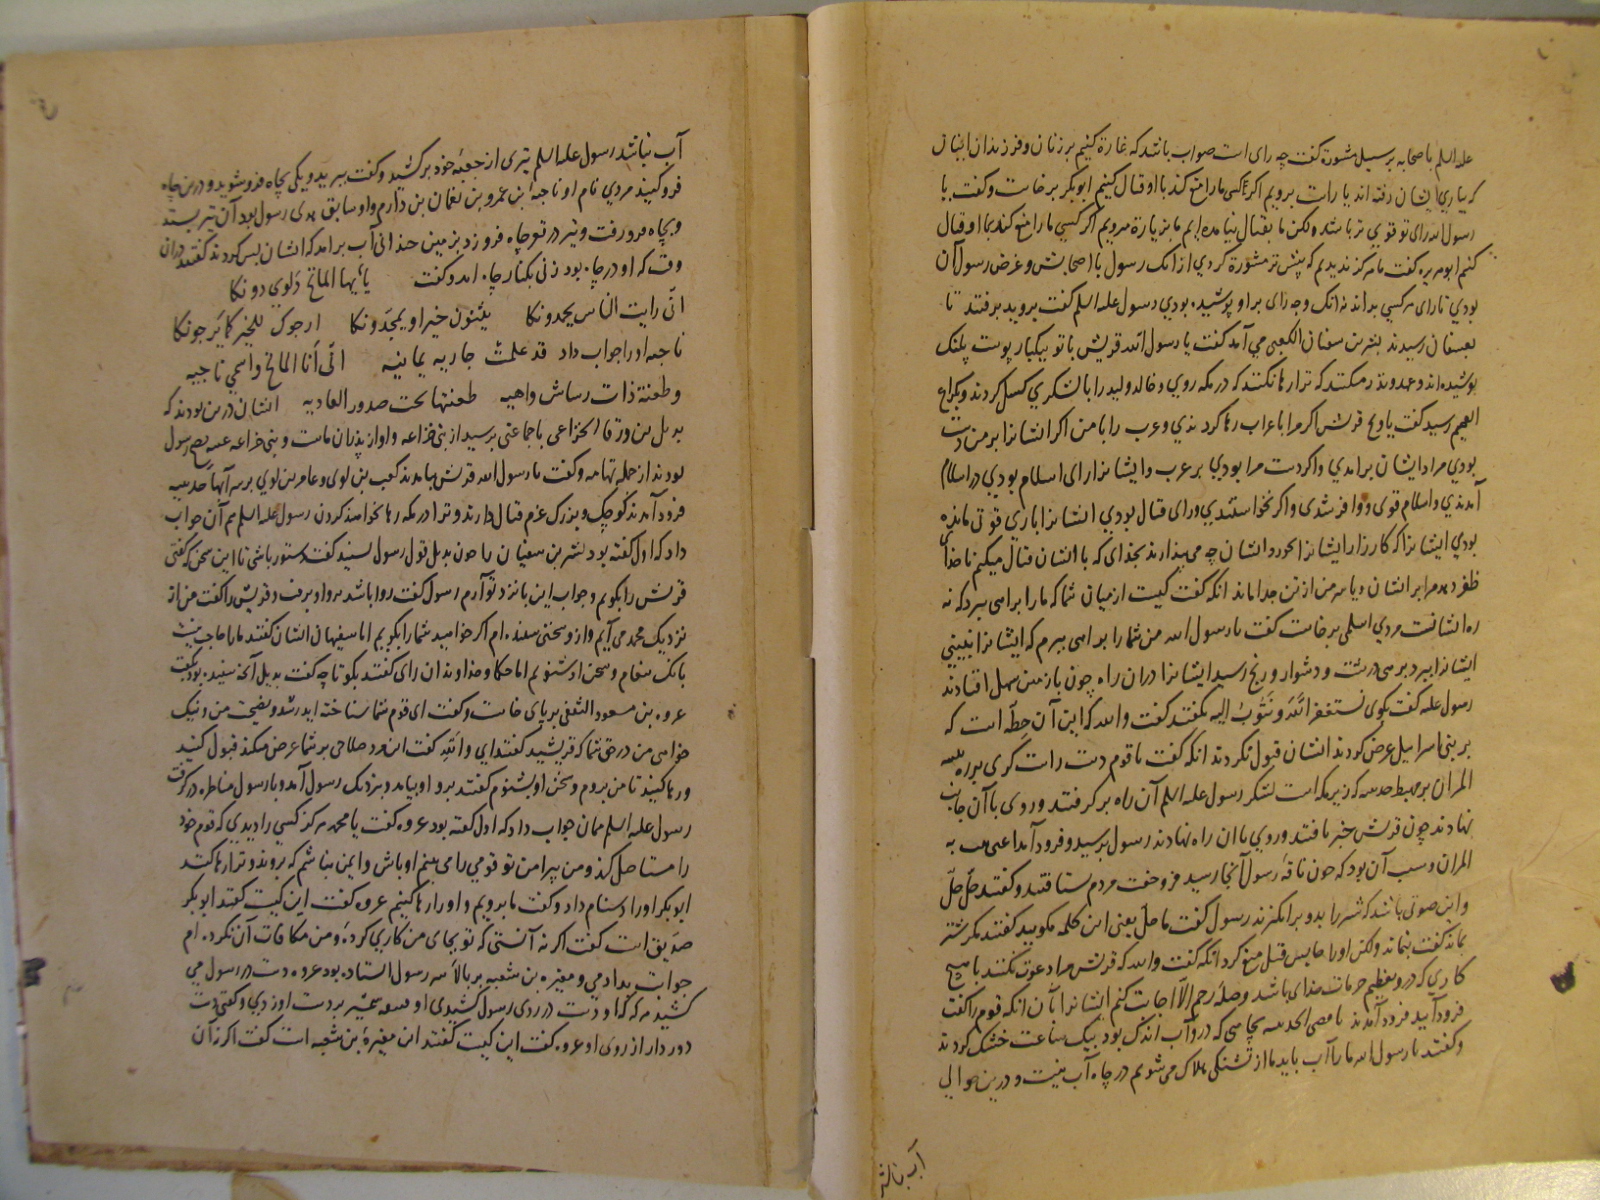 علیه السلم با صحابه بر سبیل مشورة گفت چه رای است صواب باشد که غارة کنیم بر زنان و فرزندان اینان
که بیاری ایشان رفته اند یا راست برویم اگر کسی ما را منع کند با او قتال کنیم ابوبکر برخاست و گفت یا
رسول الله رای تو قوی تر باشد ولکن ما بقتال نیامده ایم ما بزیارة میرویم اگر کسی ما را منع کند با او قتال
کنیم ابوهریره گفت ما هرگز ندیدیم که بیش تر مشورة کردی از انک رسول با اصحابش و غرض رسول آن
بودی تا رای هر کسی بداند نه انک وجه رای بر او پوشیده بودی رسول علیه السلم گفت بروید برفتند تا
بعسفان رسیدند بشر بن سفیان الکعبی می آمد گفت یا رسول الله قریش با تو بیکبار پوست پلنگ
پوشیده اند و عهد و نذر میکنند که ترا رها نکنند که در مکه روی و خالد ولید را با لشکری گسیل کردند و بکراع
الغمیم رسید گفت یا ویح قریش اگر مرا با عراب رها کردندی و عرب را با من اگر ایشانرا بر من دست
بودی مراد ایشان برامدی و اگر دست مرا بودی بر عرب و ایشانرا رای اسلام بودی در اسلام
آمدندی و اسلام قوی و وافر شدی و اگر نخواستندی و رای قتال بودی ایشانرا باری قوتی مانده
بودی ایشانرا که کارزار ایشانرا بخورد ایشان چه می پندارند بخدای که با ایشان قتال میکنم تا خدا
ظفر دهد مرا بر ایشان و یا سر من از تن جدا ماند انکه گفت کیست از میان شما که ما را براهی ببرد که نه
ره ایشانست مردی اسلمی برخاست گفت یا رسول الله من شما را براهی ببرم که ایشانرا نبینی
ایشانرا ببرد برهی درشت و دشوار و رنج رسید ایشانرا دران راه چون بازمین سهل افتادند
رسول علیه گفت بگوی نستغفر الله و نتوب الیه بگفتند گفت والله که این آن حطه است که
بر بنی اسرایل عرض کردند ایشان قبول نکردند انکه گفت با قوم دست راست گری بر ره
المران بر مهبط حدیبیه که زیر مکه است لشکر رسول علیه السلم آن راه بر گرفتند و روی با آن جانب
نهادند چون قریش خبر یافتند و روی با ان راه نهادند رسول برسید و فرود آمد اعنی به
المران و سبب آن بود که چون ناقه رسول آنجا رسید فرو خفت مردم بشتافتند و گفتند حل حل
و این صوتی باشد که شتر را بدو برانگیزند رسول گفت ما حل یعنی این کلمه مگویید گفتند مگر شتر
بماند گفت بنماند ولکن او را حابس فیل منع کرد انکه گفت والله که قریش مرا دعوت نکنند با هیچ
کاری که درو تعظیم حرمات خدای باشد و صله رحم الا اجابت کنم ایشانرا با آن انکه قوم را گفت
فرود آیید فرود آمدند باقصی الحدیبیه بچاهی که درو آب اندک بود بیک ساعت خشک کردند
و گفتند یا رسول الله ما را آب باید ما از تشنگی هلاک می شویم در چاه آب نیست و درین حوالی
آب نباشد
آب نباشد رسول علیه السلم تیری از جعبه خود برکشید و گفت ببرید و یکی بچاه فرو شوید و درین چاه
فرو کنید مردی نام او ناجیه بن عمرو بن نعمان بن دارم و او سابق هدی رسول بود آن تیر بستد
و بچاه فرو رفت و تیر در قعر چاه فرو زد بزمین چندانی آب برامد که ایشان بس کردند گفتند دران
وقت که او در چاه بود زنی بکنار چاه امد و گفت یا ایها الماتح دلوی دونکا
انی رایت الناس یحمدونکا یثنون خیرا و یمجدونکا ارجوک للخیر کما یرجونکا
ناجیه او را جواب داد قد علمت جاریه یمانیه انی أنا الماتح واسمی ناجیه
وطعنة ذات رشاش واهیه طعنتها تحت صدور العادیه ایشان درین بودند که
بدیل بن ورقا الخزاعی با جماعتی برسید از بنی خزاعه و او از پدران ماست و بنی خزاعه عیبه نصح رسول
بودند از جمله تهامه و گفت یا رسول الله قریش بیامدند کعب بن لوی و عامر بن لوی بر سر آبهاء حدیبیه
فرود آمدند کوچک و بزرگ عزم قتال دارند و ترا در مکه رها نخواهند کردن رسول علیه السلم هم آن جواب
داد که اول گفته بود بشر بن سفیان را چون بدیل قول رسول بشنید گفت دستور باشی تا این سخن که گفتی
قریش را بگویم و جواب این با نزد تو آرم رسول گفت روا باشد برو او برفت و قریش را گفت من از
نزدیک محمد می آیم و از و سخنی شنیده ام اگر خواهید شما را بگویم اما سفیهان ایشان گفتند ما را حاجت نیست
بانک پیغام و سخن او شنویم اما حکما و خداوندان رای گفتند بگو تا چه گفت بدیل آنچه شنیده بود بگفت
عروه بن مسعود الثقفی بر پای خاست و گفت ای قوم شما شناخته اید رشد و نصیحت من و نیک
خواهی من در حق شما که قریشید گفتند ای والله گفت این مرد صلاحی بر شما عرض میکند قبول کنید
و رها کنید تا من بروم و سخن او بشنوم گفتند برو او بیامد و بنزدیک رسول آمد و با رسول مناظره در گرفت
رسول علیه السلم همان جواب داد که اول گفته بود عروه گفت یا محمد هرگز کسی را دیدی که قوم خود
را مستاصل کند و من پیرامن تو قومی را می بینم اوباش و ایمن نباشم که بروند و ترا رها کنند
ابوبکر او را دشنام داد و گفت ما برویم و او را رها کنیم عروه گفت این کیست گفتند ابوبکر
صدیق است گفت اگر نه آنستی که تو بجای من کاری کرده و من مکافات آن نکرده ام
جوابت بدادمی و مغیره بن شعبه بر بالاء سر رسول استاده بود عروه دست در رسول می
کشید هر گه که او دست در روی رسول کشیدی او شمشیر بر دست او زدی و گفتی دست
دور دار از روی او عروه گفت این کیست گفتند این مغیرة بن شعبه است گفت اگر نه آن